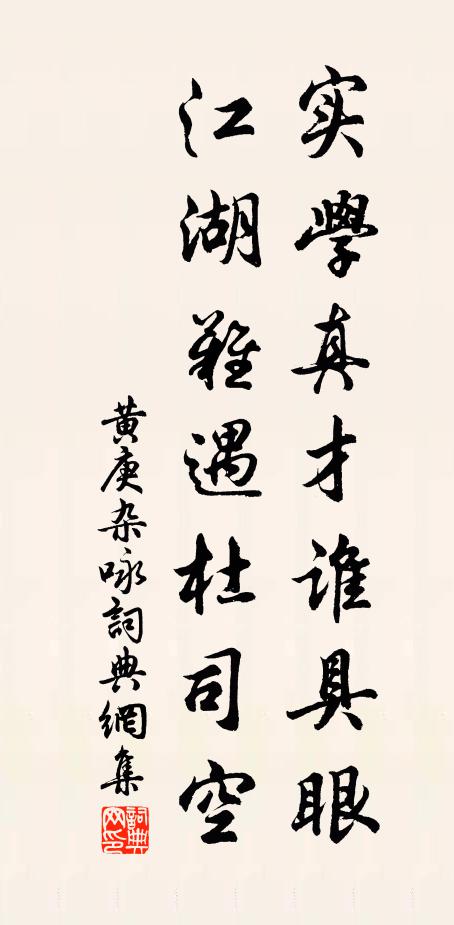 实學真才谁具眼
江湖难遇杜司空
黄庚杂咏詞典網集
詞典网印